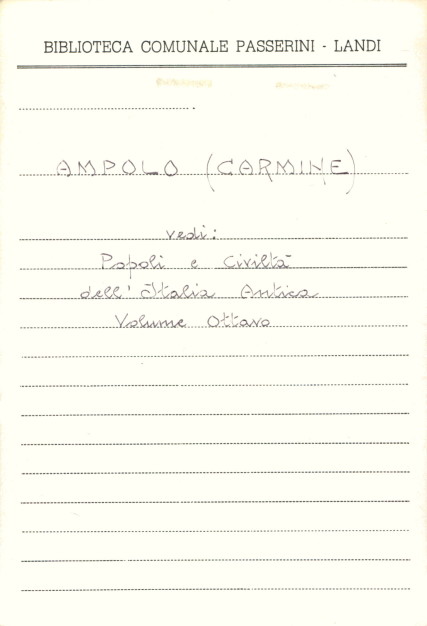 BIBLIOTECA COMUNALE PASSERINI - LANDI
AMPOLO (CARMINE)
vedi:
Popoli e Civiltà
dell' Italia Antica
Volume Ottavo